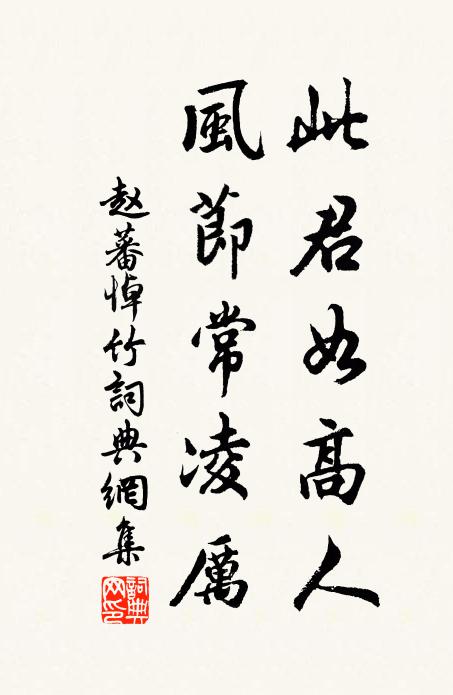 此君如高人
風節常凌厲
赵蕃悼竹詞典網集
詞典
网印